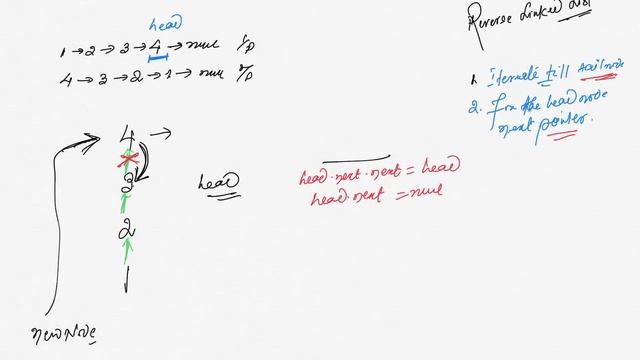 Reverse Linked List
head
1 → 2 → 3 → 4 → null I/p
4 → 3 → 2 → 1 → null O/p
1. iterate till tail node
2. Fix the head node
next pointer.
4 →
3
2
1
head
head.next.next = head
head.next = null
newNode